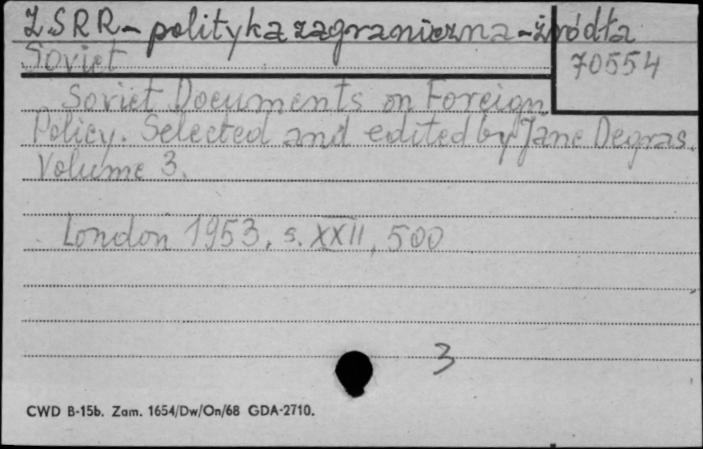 ZSRR - polityka zagraniczna - źródła
Soviet
70554
Soviet Documents on Foreign
Policy. Selected and edited by Jane Degras.
Volume 3.
London 1953, s. XXII, 500
3
CWD B-15b. Zam. 1654/Dw/On/68 GDA-2710.